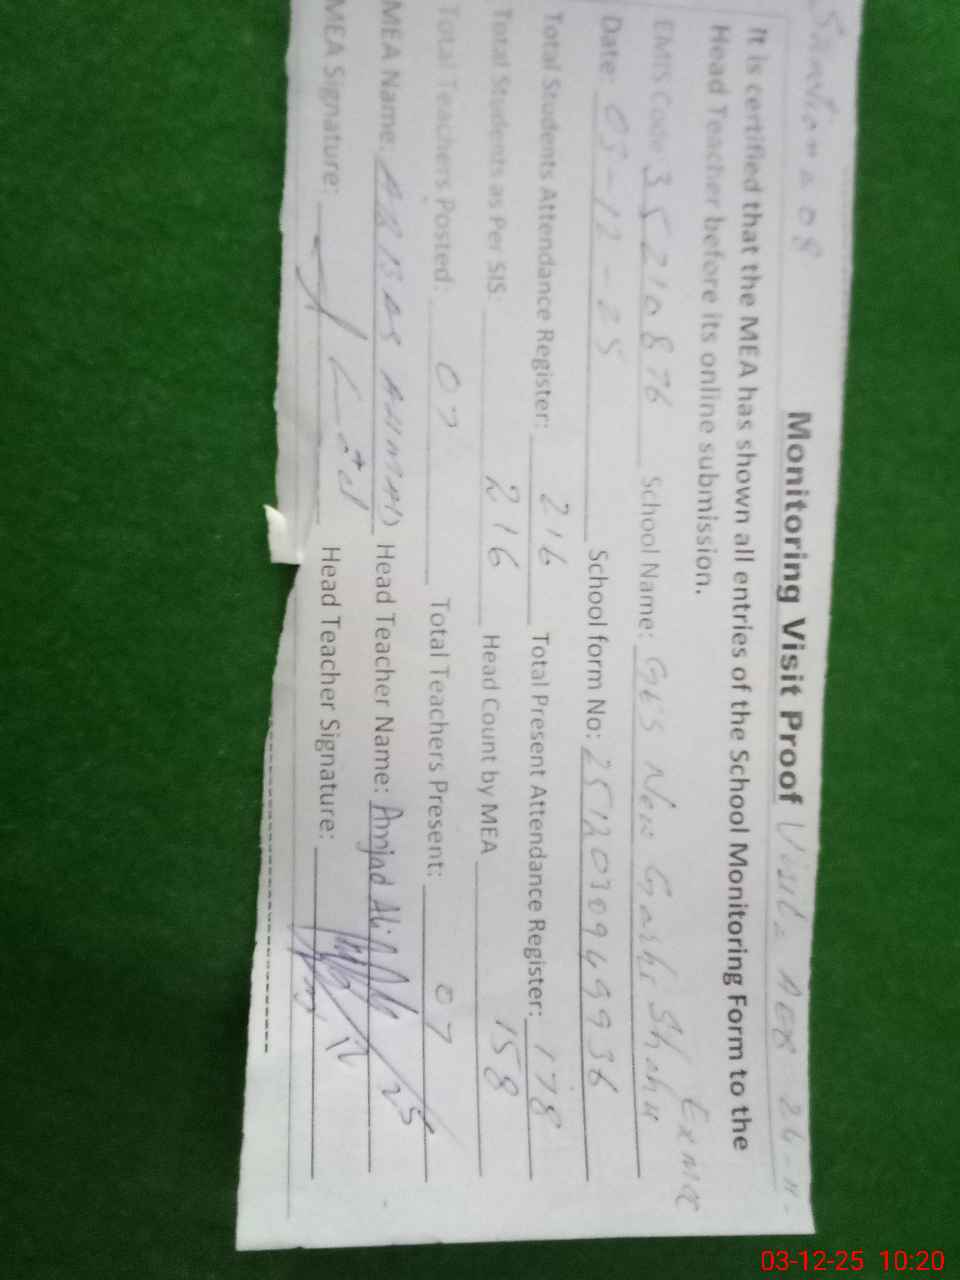 Sanction = 08
Monitoring Visit Proof Visit = AEO 24-11-
It is certified that the MEA has shown all entries of the School Monitoring Form to the
Head Teacher before its online submission.
EMIS Code: 35210876 School Name: GES New Garhi Shahu
Date: 03-12-25 School form No: 2512030949936
Total Students Attendance Register: 216 Total Present Attendance Register: 178
Total Students as Per SIS: 216 Head Count by MEA 158
Total Teachers Posted: 07 Total Teachers Present: 07
MEA Name: ARBAS AHMAD Head Teacher Name: Amjad Ali
MEA Signature: Head Teacher Signature:
03-12-25 10:20